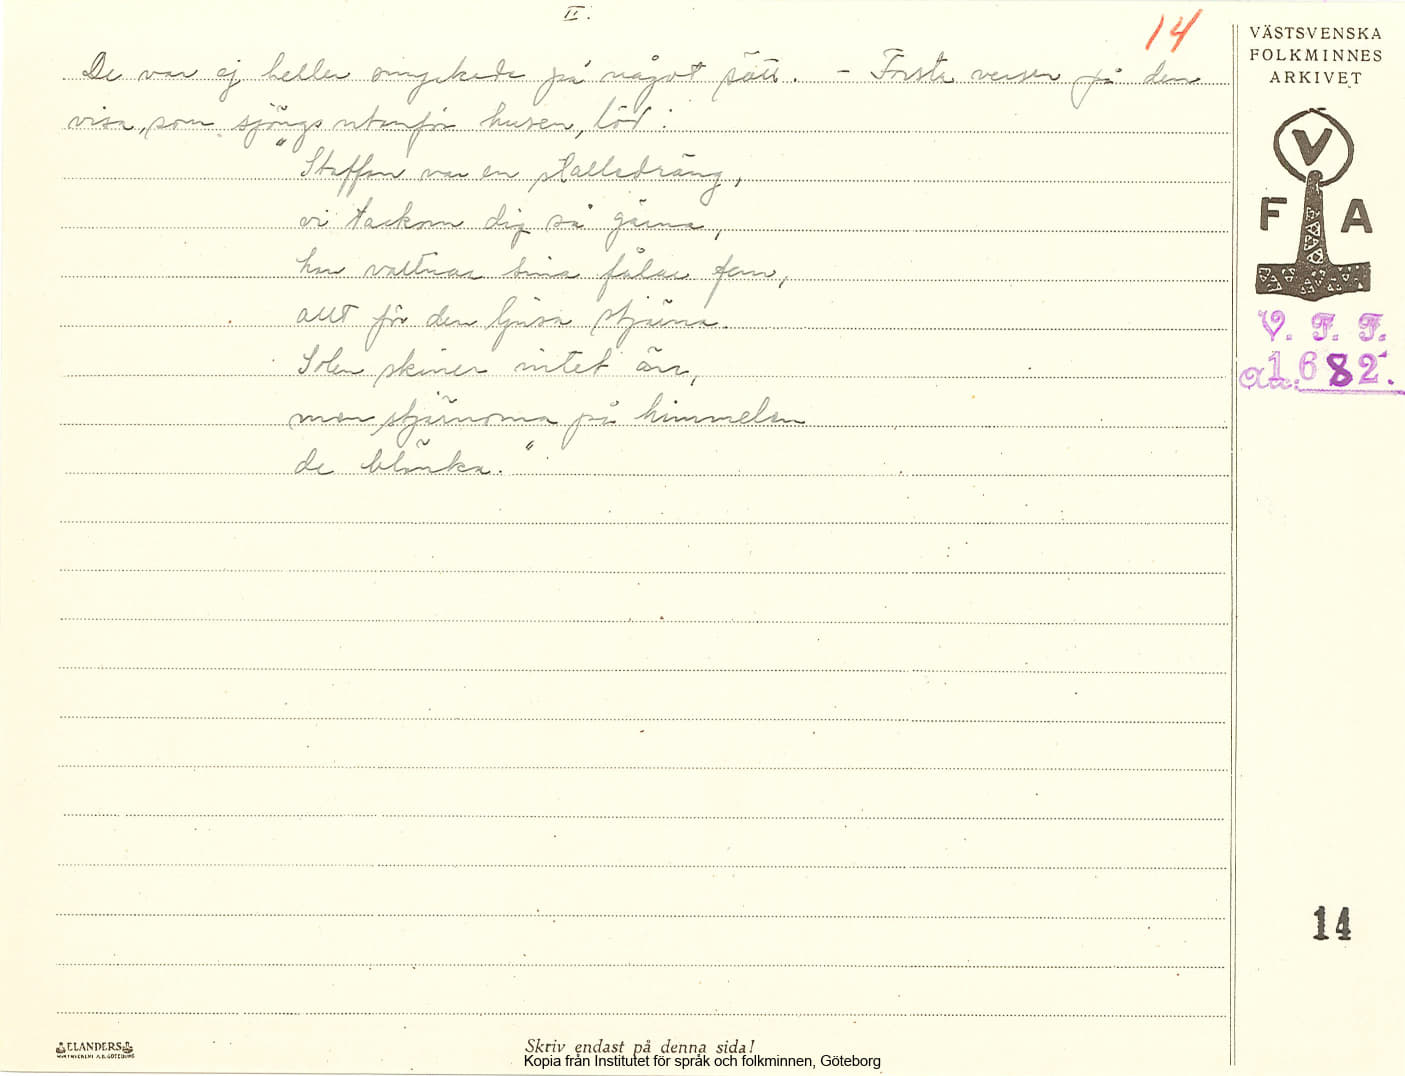 II.
14
De var ej heller smyckade på något sätt. - Första versen på den
visa, som sjöngs utanför husen, löd:
"Staffan var en stalledräng,
vi tackom dig så gärna,
han vattnar sina fålar fem,
allt för den ljusa stjärna.
Solen skiner intet än,
men stjärnorna på himmelen
de blänka."
VÄSTSVENSKA
FOLKMINNES
ARKIVET
V
F A
V. F. F.
1682.
14
ELANDERS
Skriv endast på denna sida!
Kopia från Institutet för språk och folkminnen, Göteborg